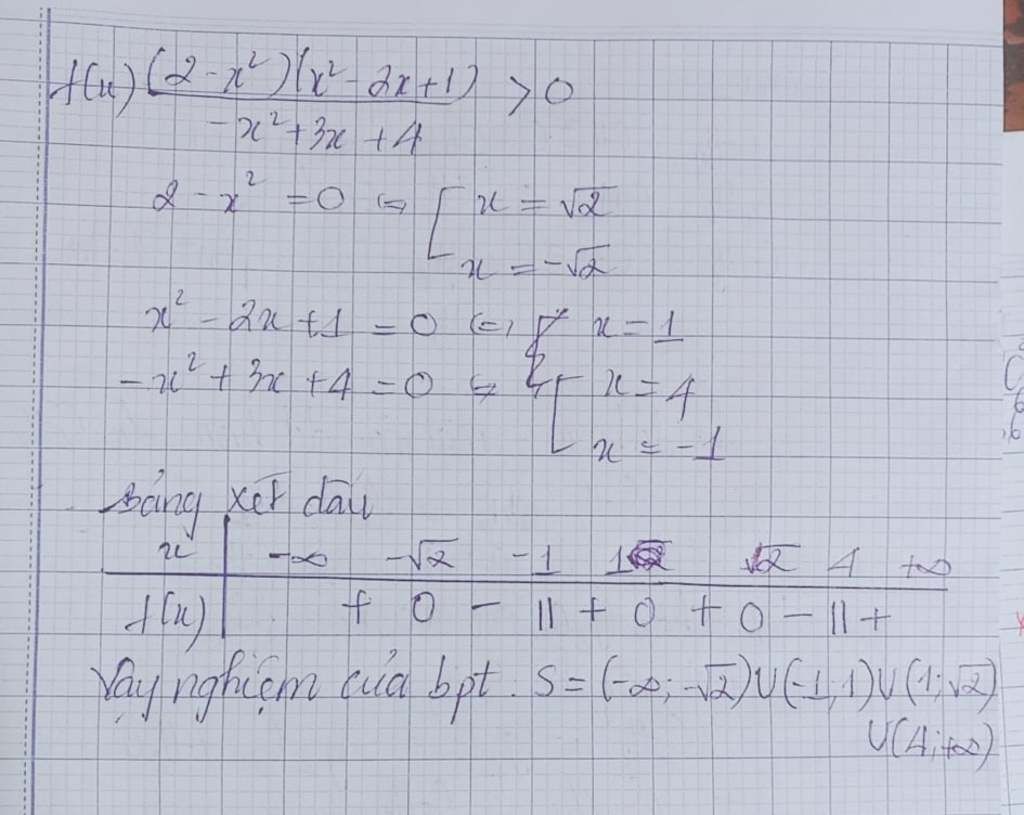 f(x) (2 - x²)(x² - 2x + 1) / (-x² + 3x + 4) > 0
2 - x² = 0 ⇔ [ x = √2
x = -√2
x² - 2x + 1 = 0 ⇔ x = 1
-x² + 3x + 4 = 0 ⇔ [ x = 4
x = -1
Bảng xét dấu
x | -∞ -√2 -1 1 √2 4 +∞
f(x) | + 0 - || + 0 + 0 - || +
Vậy nghiệm của bpt. S = (-∞; -√2) U (-1, 1) U (1; √2)
U (4; +∞)